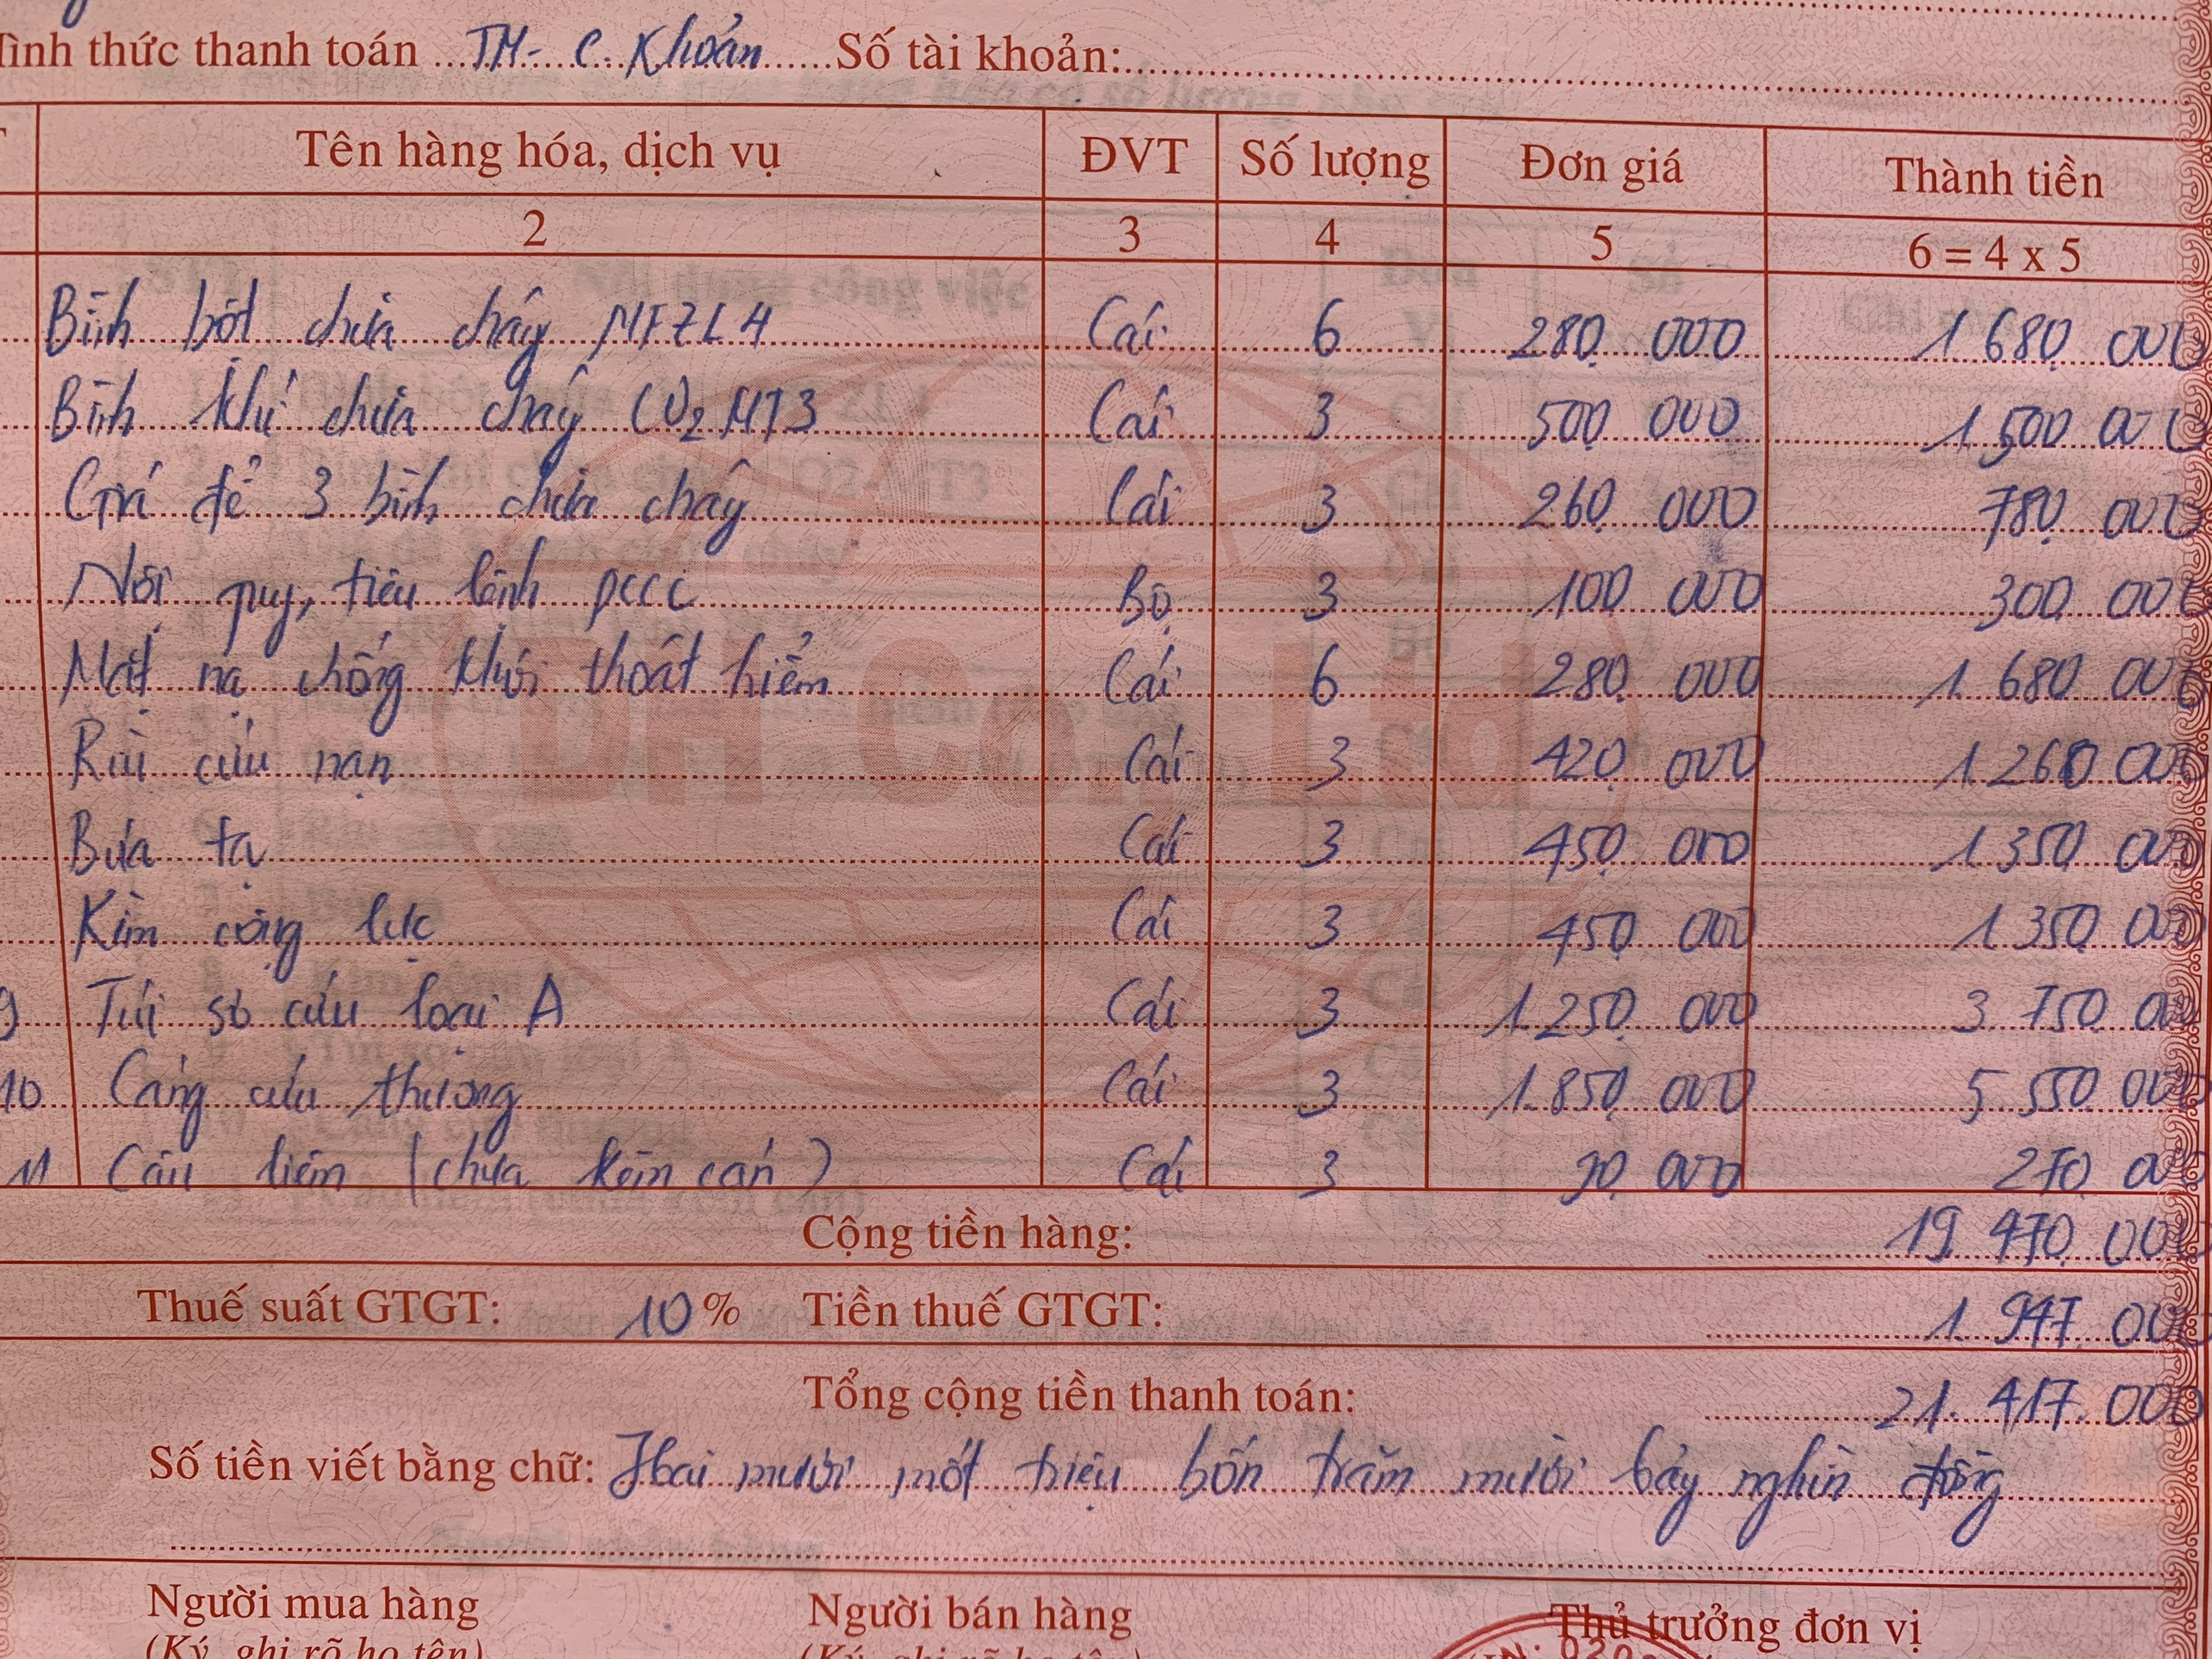 Hình thức thanh toán TM- C. Khoản Số tài khoản:
Tên hàng hóa, dịch vụ ĐVT Số lượng Đơn giá Thành tiền
2 3 4 5 6 = 4 x 5
Bình bột chữa cháy MFZL4 Cái 6 280.000 1.680.000
Bình khí chữa cháy CO2 MT3 Cái 3 500.000 1.500.000
Giá để 3 bình chữa cháy Cái 3 260.000 780.000
Nội quy, tiêu lệnh pccc Bộ 3 100.000 300.000
Mặt nạ chống khói thoát hiểm Cái 6 280.000 1.680.000
Rùi cứu nạn Cái 3 420.000 1.260.000
Búa tạ Cái 3 450.000 1.350.000
Kìm cộng lực Cái 3 450.000 1.350.000
9 Túi sơ cứu loại A Cái 3 1.250.000 3.750.000
10 Cáng cứu thương Cái 3 1.850.000 5.550.000
11 Câu liêm (chưa kèm cán) Cái 3 90.000 270.000
Cộng tiền hàng: 19.470.000
Thuế suất GTGT: 10% Tiền thuế GTGT: 1.947.000
Tổng cộng tiền thanh toán: 21.417.000
Số tiền viết bằng chữ: Hai mươi mốt triệu bốn trăm mười bảy nghìn đồng
Người mua hàng Người bán hàng Thủ trưởng đơn vị
(Ký, ghi rõ họ tên) (Ký, ghi rõ họ tên)
DH Co., Ltd